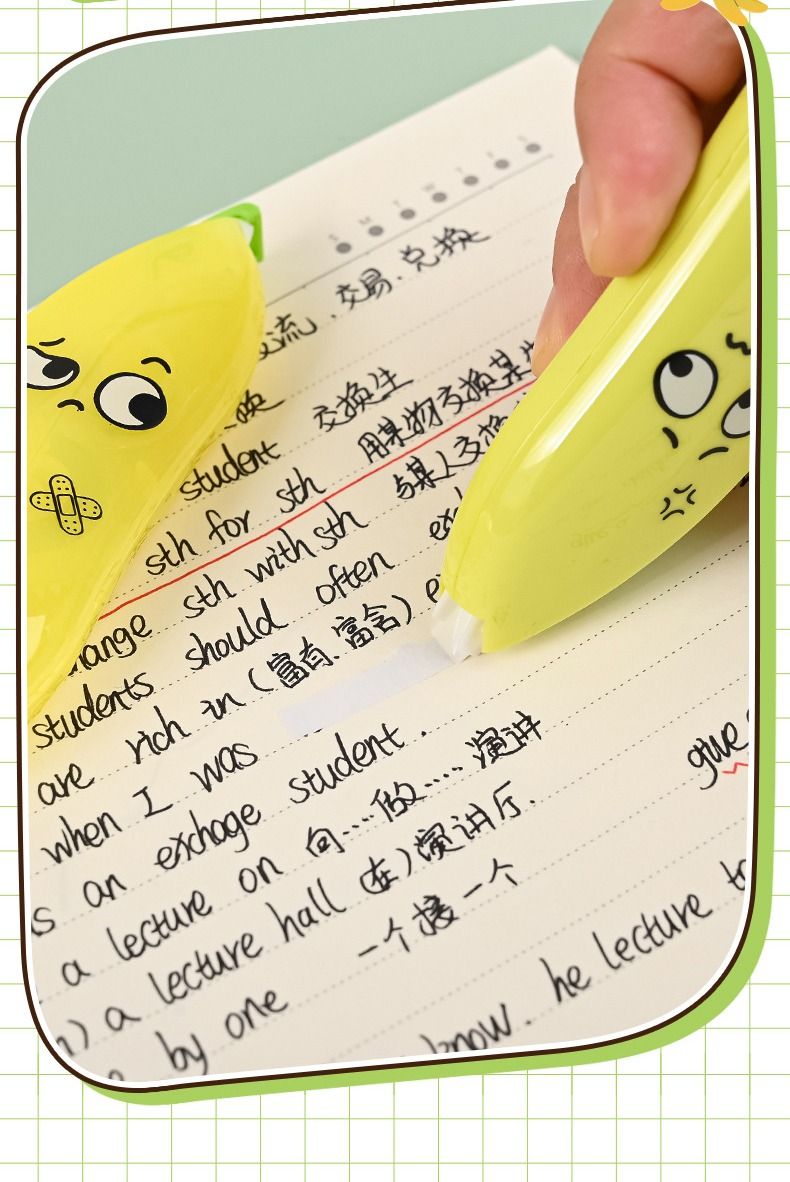 S M T W T F S
交流、交易、兑换
换
student 交换生
sth for sth 用某物交换某
sth with sth 与某人交换
students should often
are rich in (富有、富含)
when I was
an exchage student.
a lecture on 向...做.... 演讲
give
a lecture hall (在)演讲厅.
by one 一个接一个
know. he lecture